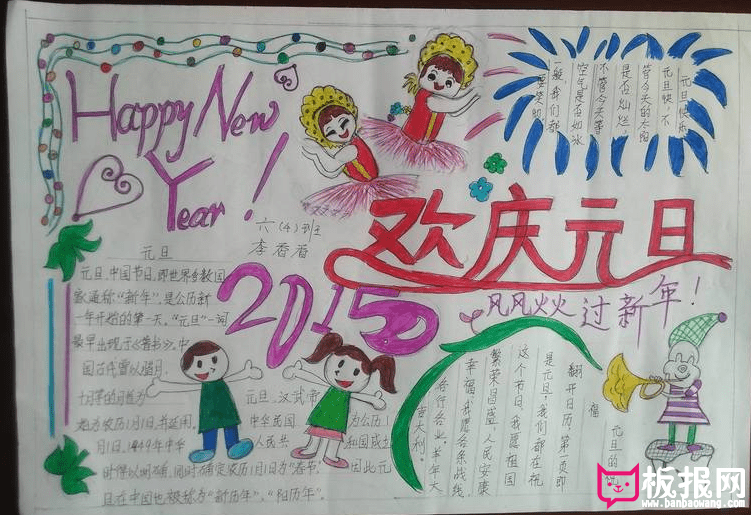 Happy New
Year!
六(4)班
李香香
欢庆元旦
2015
风风火火过新年!
元旦快乐
元旦快,不
管今天的太阳
是否灿烂
不管今天
空气是否如冰
一般我们都
要笑
元旦
元旦,中国节日,即世界多数国
家通称“新年”,是公历新
一年开始的第一天。“元旦”一词
最早出现于《晋书》。中
国古代曾以腊月、
十月等的月首为
元旦,汉武帝
为农历1月1日,并延用。
中华民国
为公历1
月1日,1949年中华
人民共
和国成立
时得以明确,同时确定农历1月1日为“春节”
因此元
旦在中国也被称为“新历年”、“阳历年”。
元旦的
福
翻开日历,第一页即
是元旦,我们都在祝
这个节日,我愿祖国
繁荣昌盛,人民安康
幸福,我愿各条战线,
各行各业,羊年大
吉大利。
板报网
www.banbaowang.com